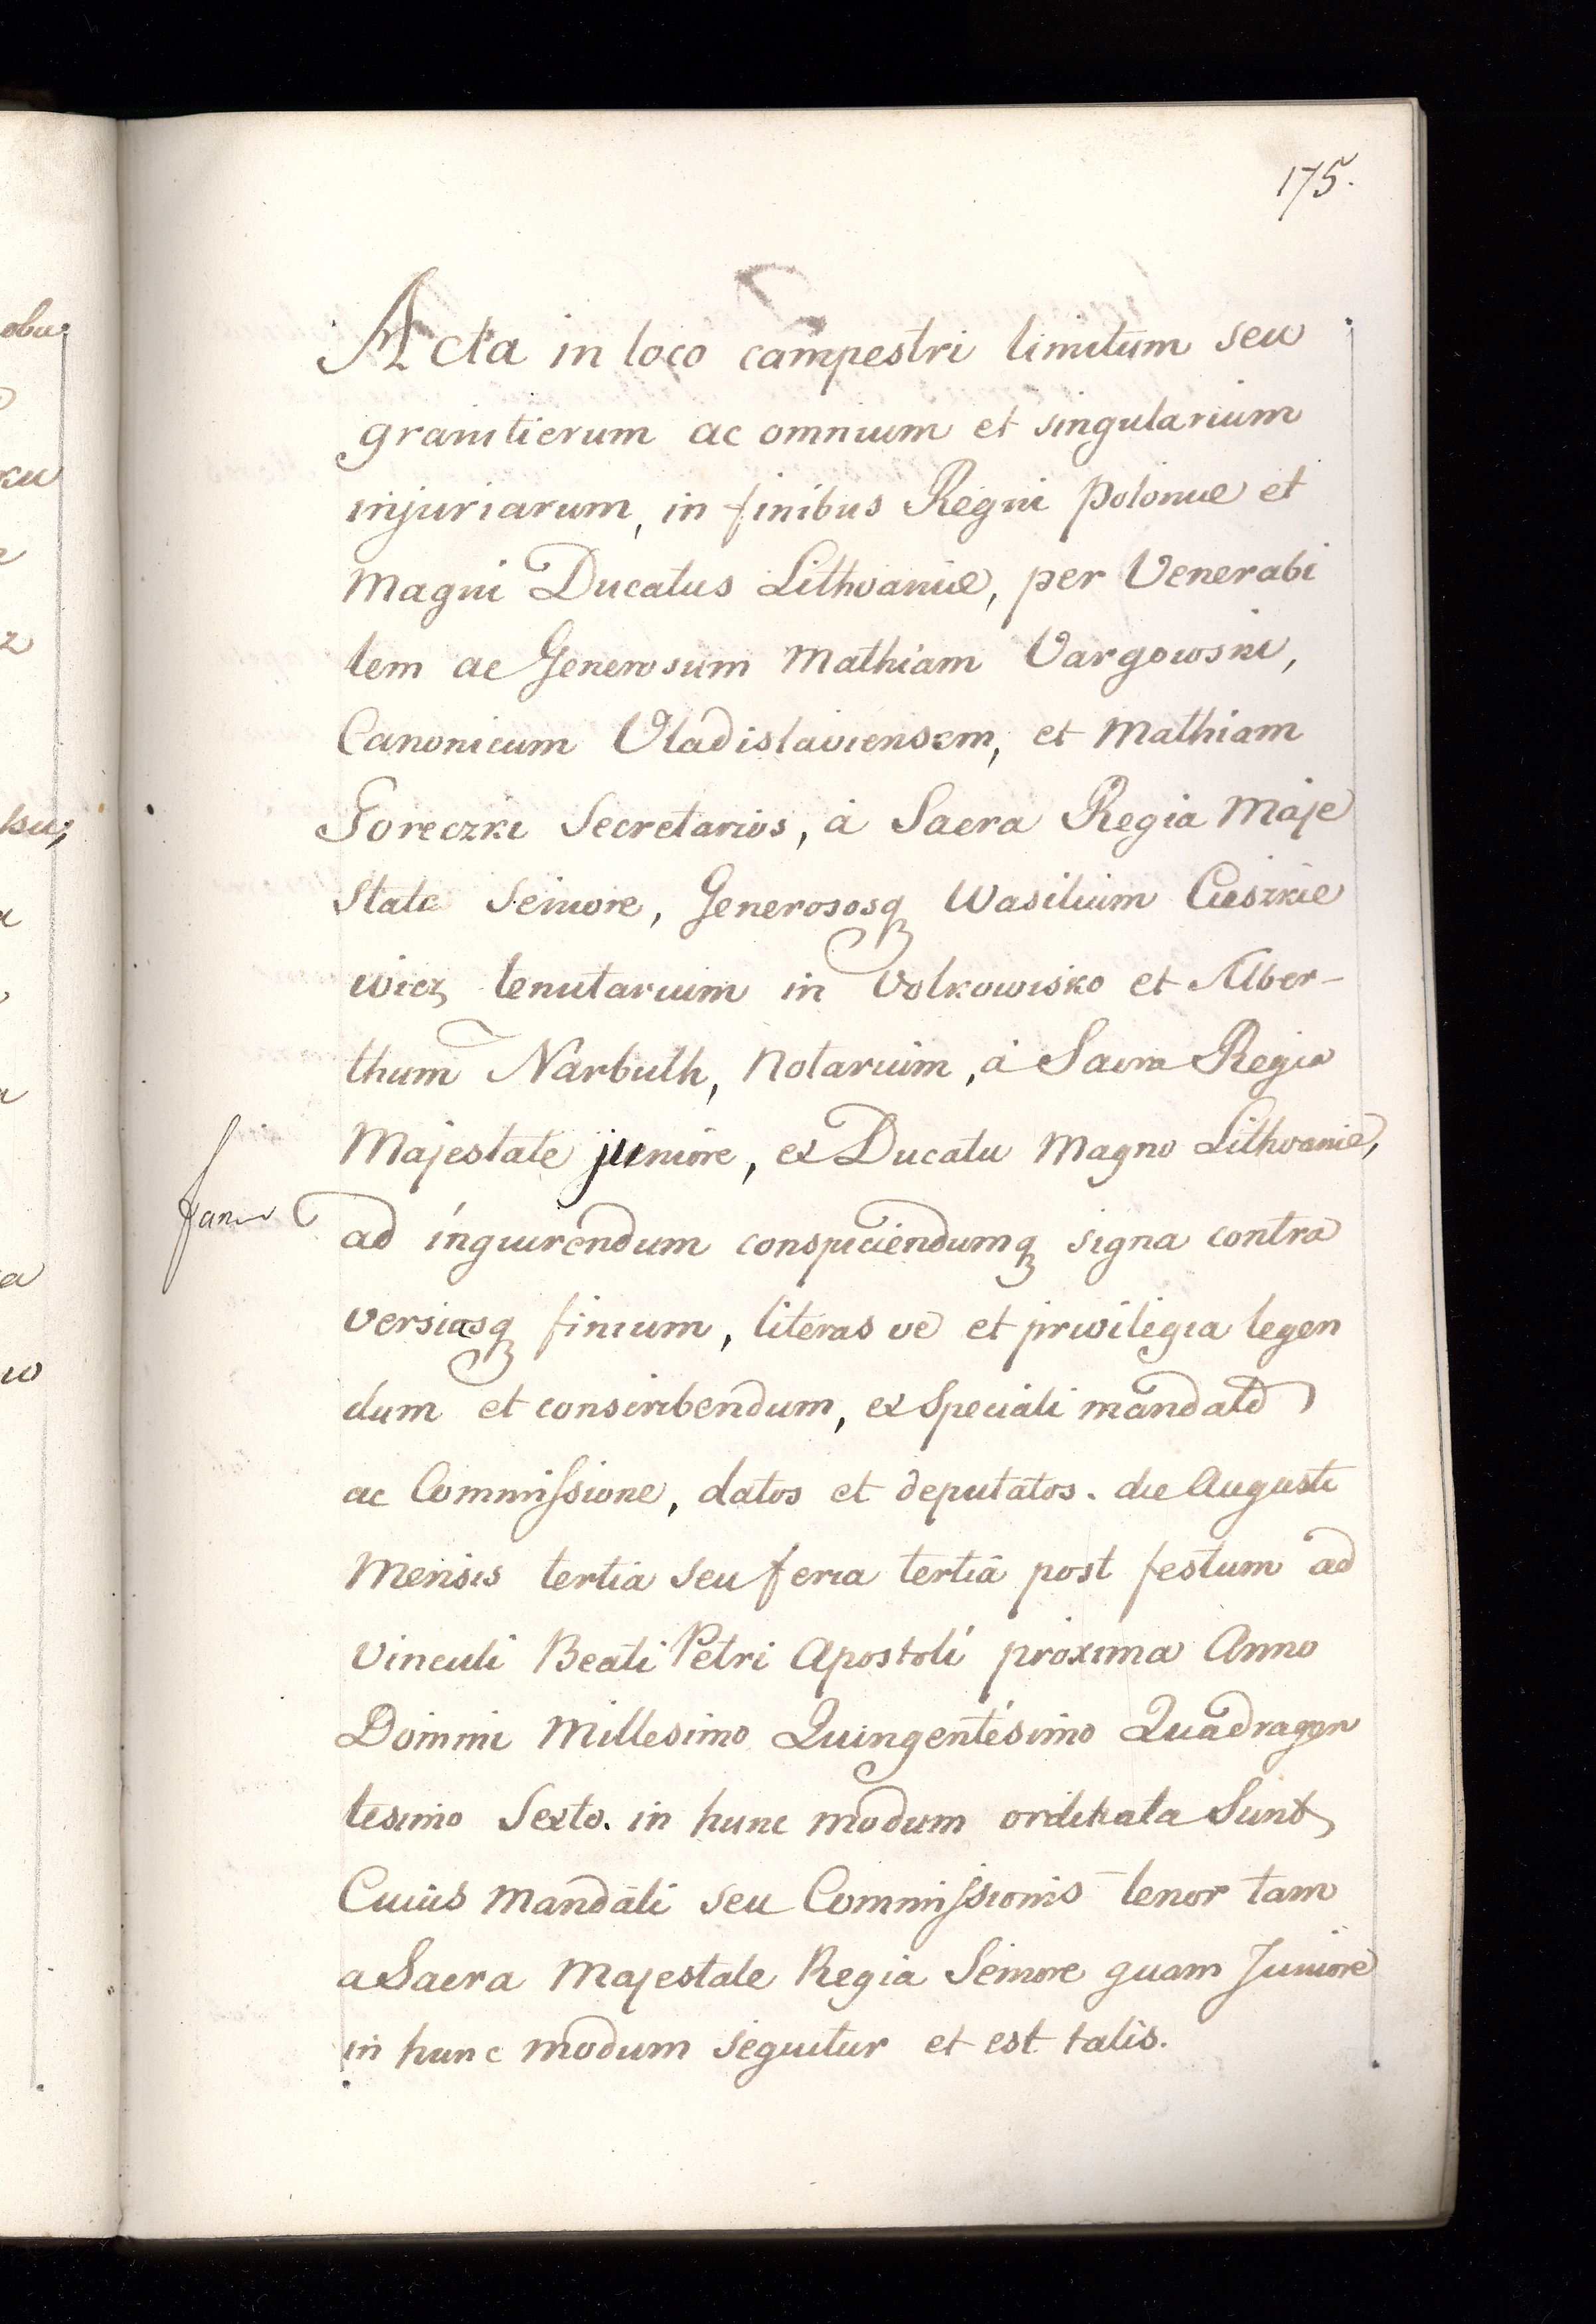 175.
Acta in loco campestri limitum seu
granitierum ac omnium et singularium
injuriarum, in finibus Regni Poloniæ et
Magni Ducatus Lithvaniæ, per Venerabi
lem ac Generosum Mathiam Vargowski,
Canonicum Vladislaviensem, et Mathiam
Goreczki Secretarios, á Sacra Regia Maje
state Seniore, Generososq Wasilium Cieszkie
wicz tenutarium in Volkowisko et Alber-
thum Narbuth, Notarium, á Sacra Regia
Majestate juniore, ex Ducatu Magno Lithvaniæ,
ad inquirendum conspiciendumq signa contra
versiasq finium, literas ve et privilegia legen
dum et conscribendum, ex Speciali mandato
ac Commissione, datos et deputatos. die Augusti
Mensis tertia seu feria tertiâ post festum ad
Vinculi Beati Petri Apostoli proxima Anno
Domini Millesimo Quingentésimo Quadragen
tesimo Sexto. in hunc modum ordinata Sunt,
Cuius Mandati seu Commissionis tenor tam
a Sacra Majestate Regia Seniore quam Juniore
in hunc modum sequitur et est talis.